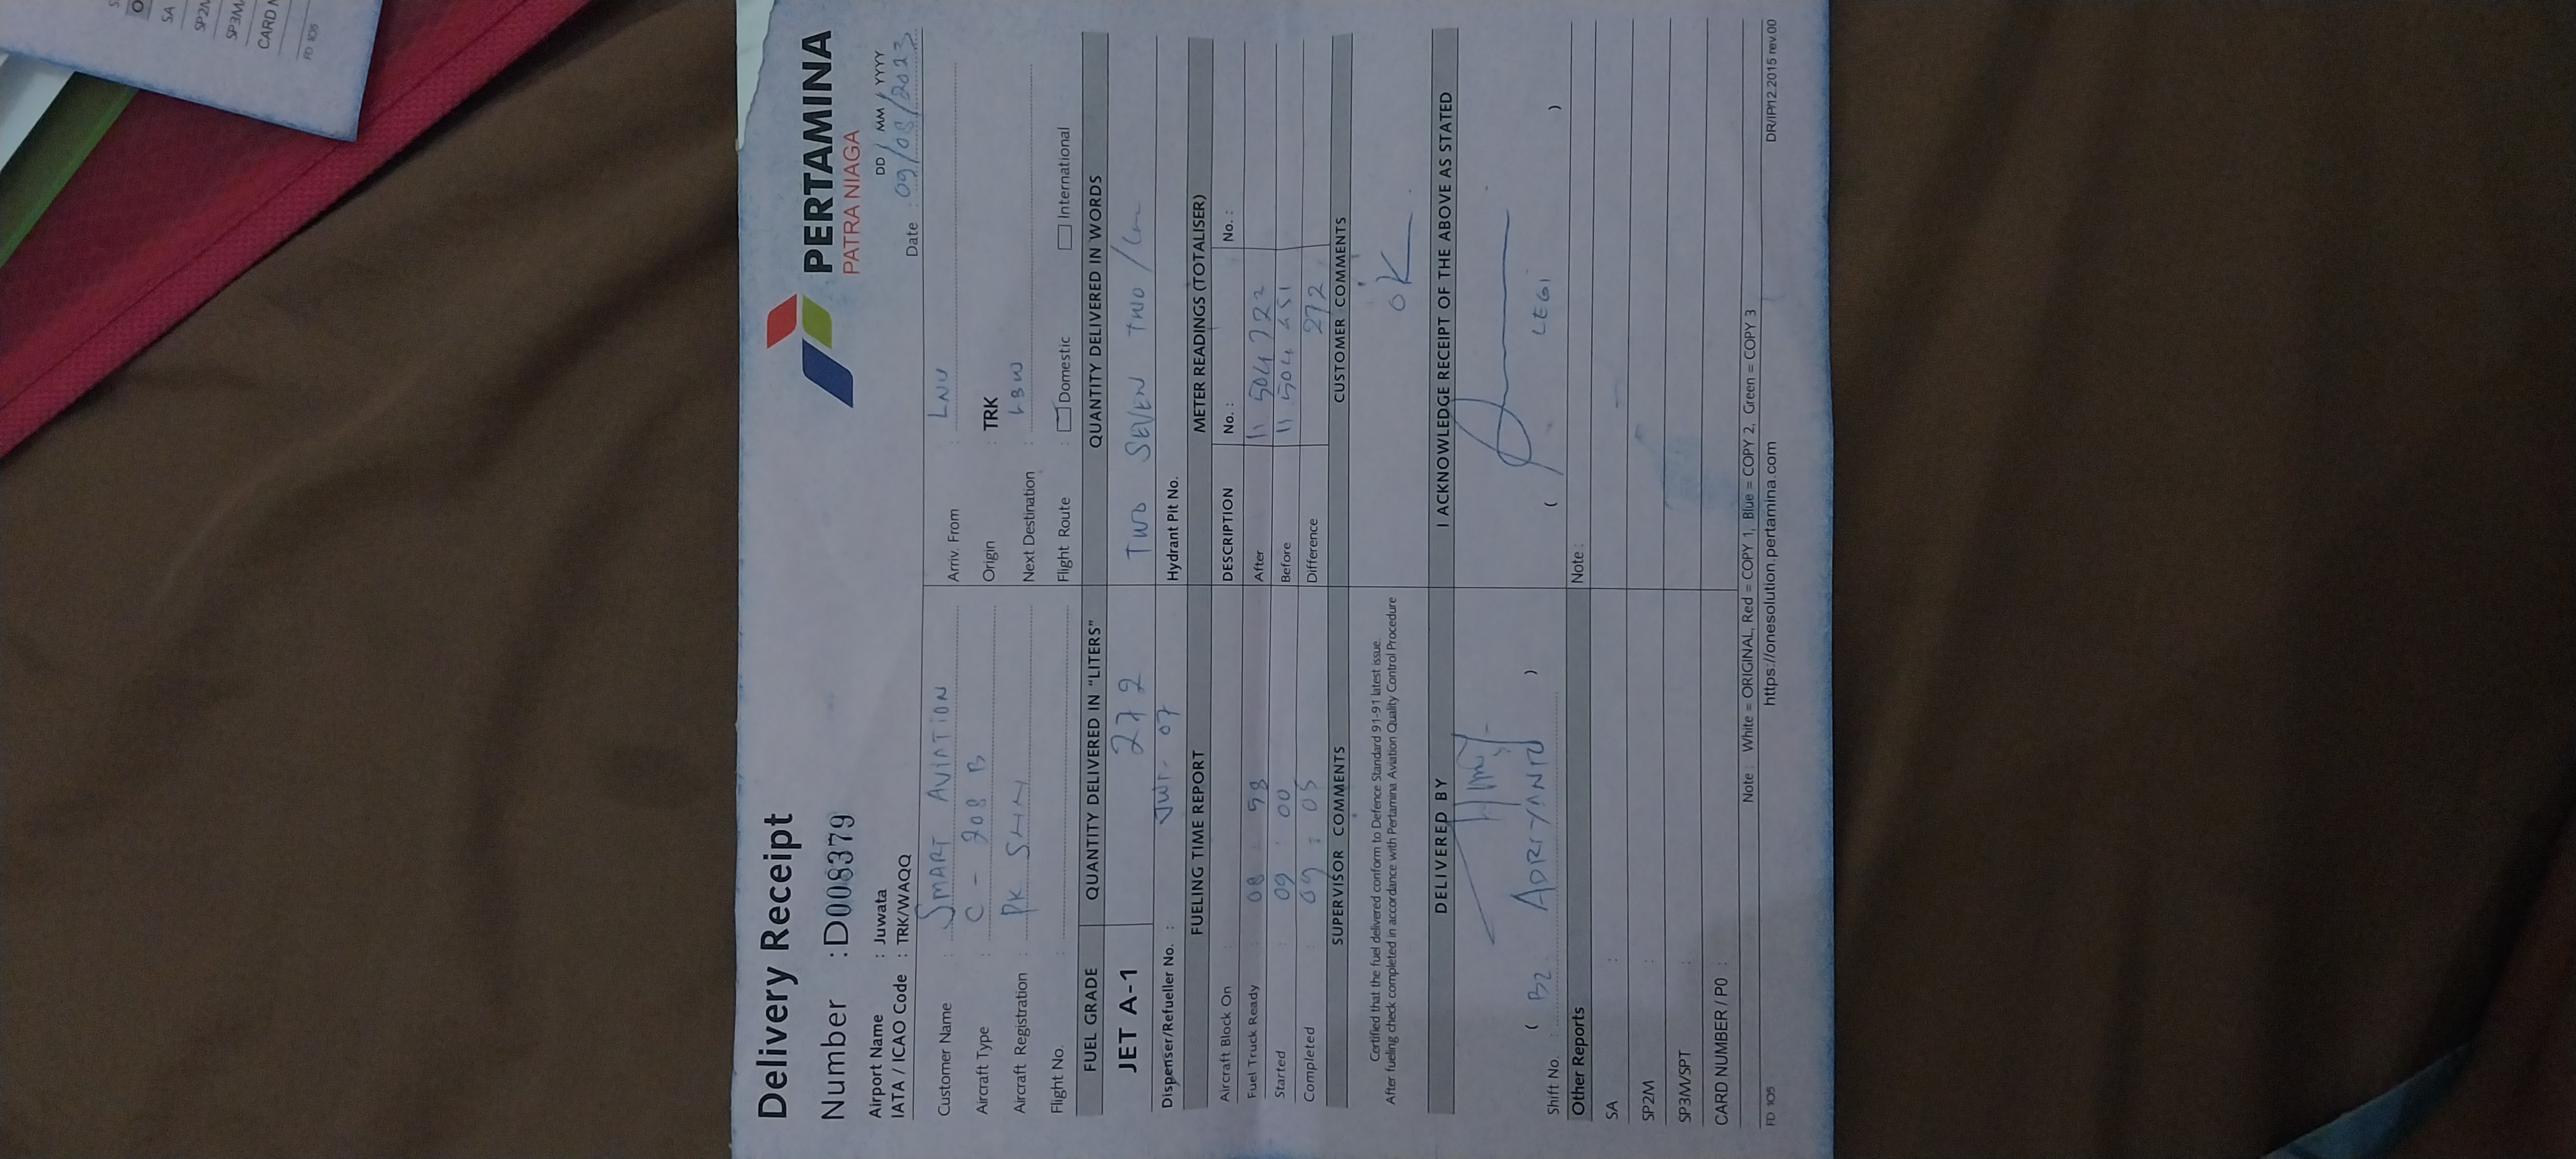 Delivery Receipt
PERTAMINA
PATRA NIAGA
Number : D008379
Airport Name : Juwata
IATA / ICAO Code : TRK/WAQQ
DD / MM / YYYY
Date : 09/08/2023
Customer Name : SMART AVIATION
Arriv. From : LNU
Aircraft Type : C - 208 B
Origin : TRK
Aircraft Registration : PK SHN
Next Destination : LBW
Flight No. :
Flight Route : Domestic International
FUEL GRADE QUANTITY DELIVERED IN "LITERS" QUANTITY DELIVERED IN WORDS
JET A-1 272 TWO SEVEN TWO /
Dispenser/Refueller No. : JWT- 07 Hydrant Pit No.
FUELING TIME REPORT METER READINGS (TOTALISER)
Aircraft Block On : DESCRIPTION No. : No. :
Fuel Truck Ready : 08 58 After 11 504 722
Started : 09 : 00 Before 11 504 451
Completed : 09 : 05 Difference 272
SUPERVISOR COMMENTS CUSTOMER COMMENTS
Certified that the fuel delivered conform to Defence Standard 91-91 latest issue.
After fueling check completed in accordance with Pertamina Aviation Quality Control Procedure
OK
DELIVERED BY I ACKNOWLEDGE RECEIPT OF THE ABOVE AS STATED
Shift No. : ( B2 ADRIYANTO ) ( LEGI )
Other Reports Note :
SA :
SP2M :
SP3M/SPT :
CARD NUMBER / PO :
Note : White = ORIGINAL, Red = COPY 1, Blue = COPY 2, Green = COPY 3
FD 105 https://onesolution.pertamina.com DR/IP/12.2015 rev.00
SA
SP2M
SP3M/
CARD N
FD 105